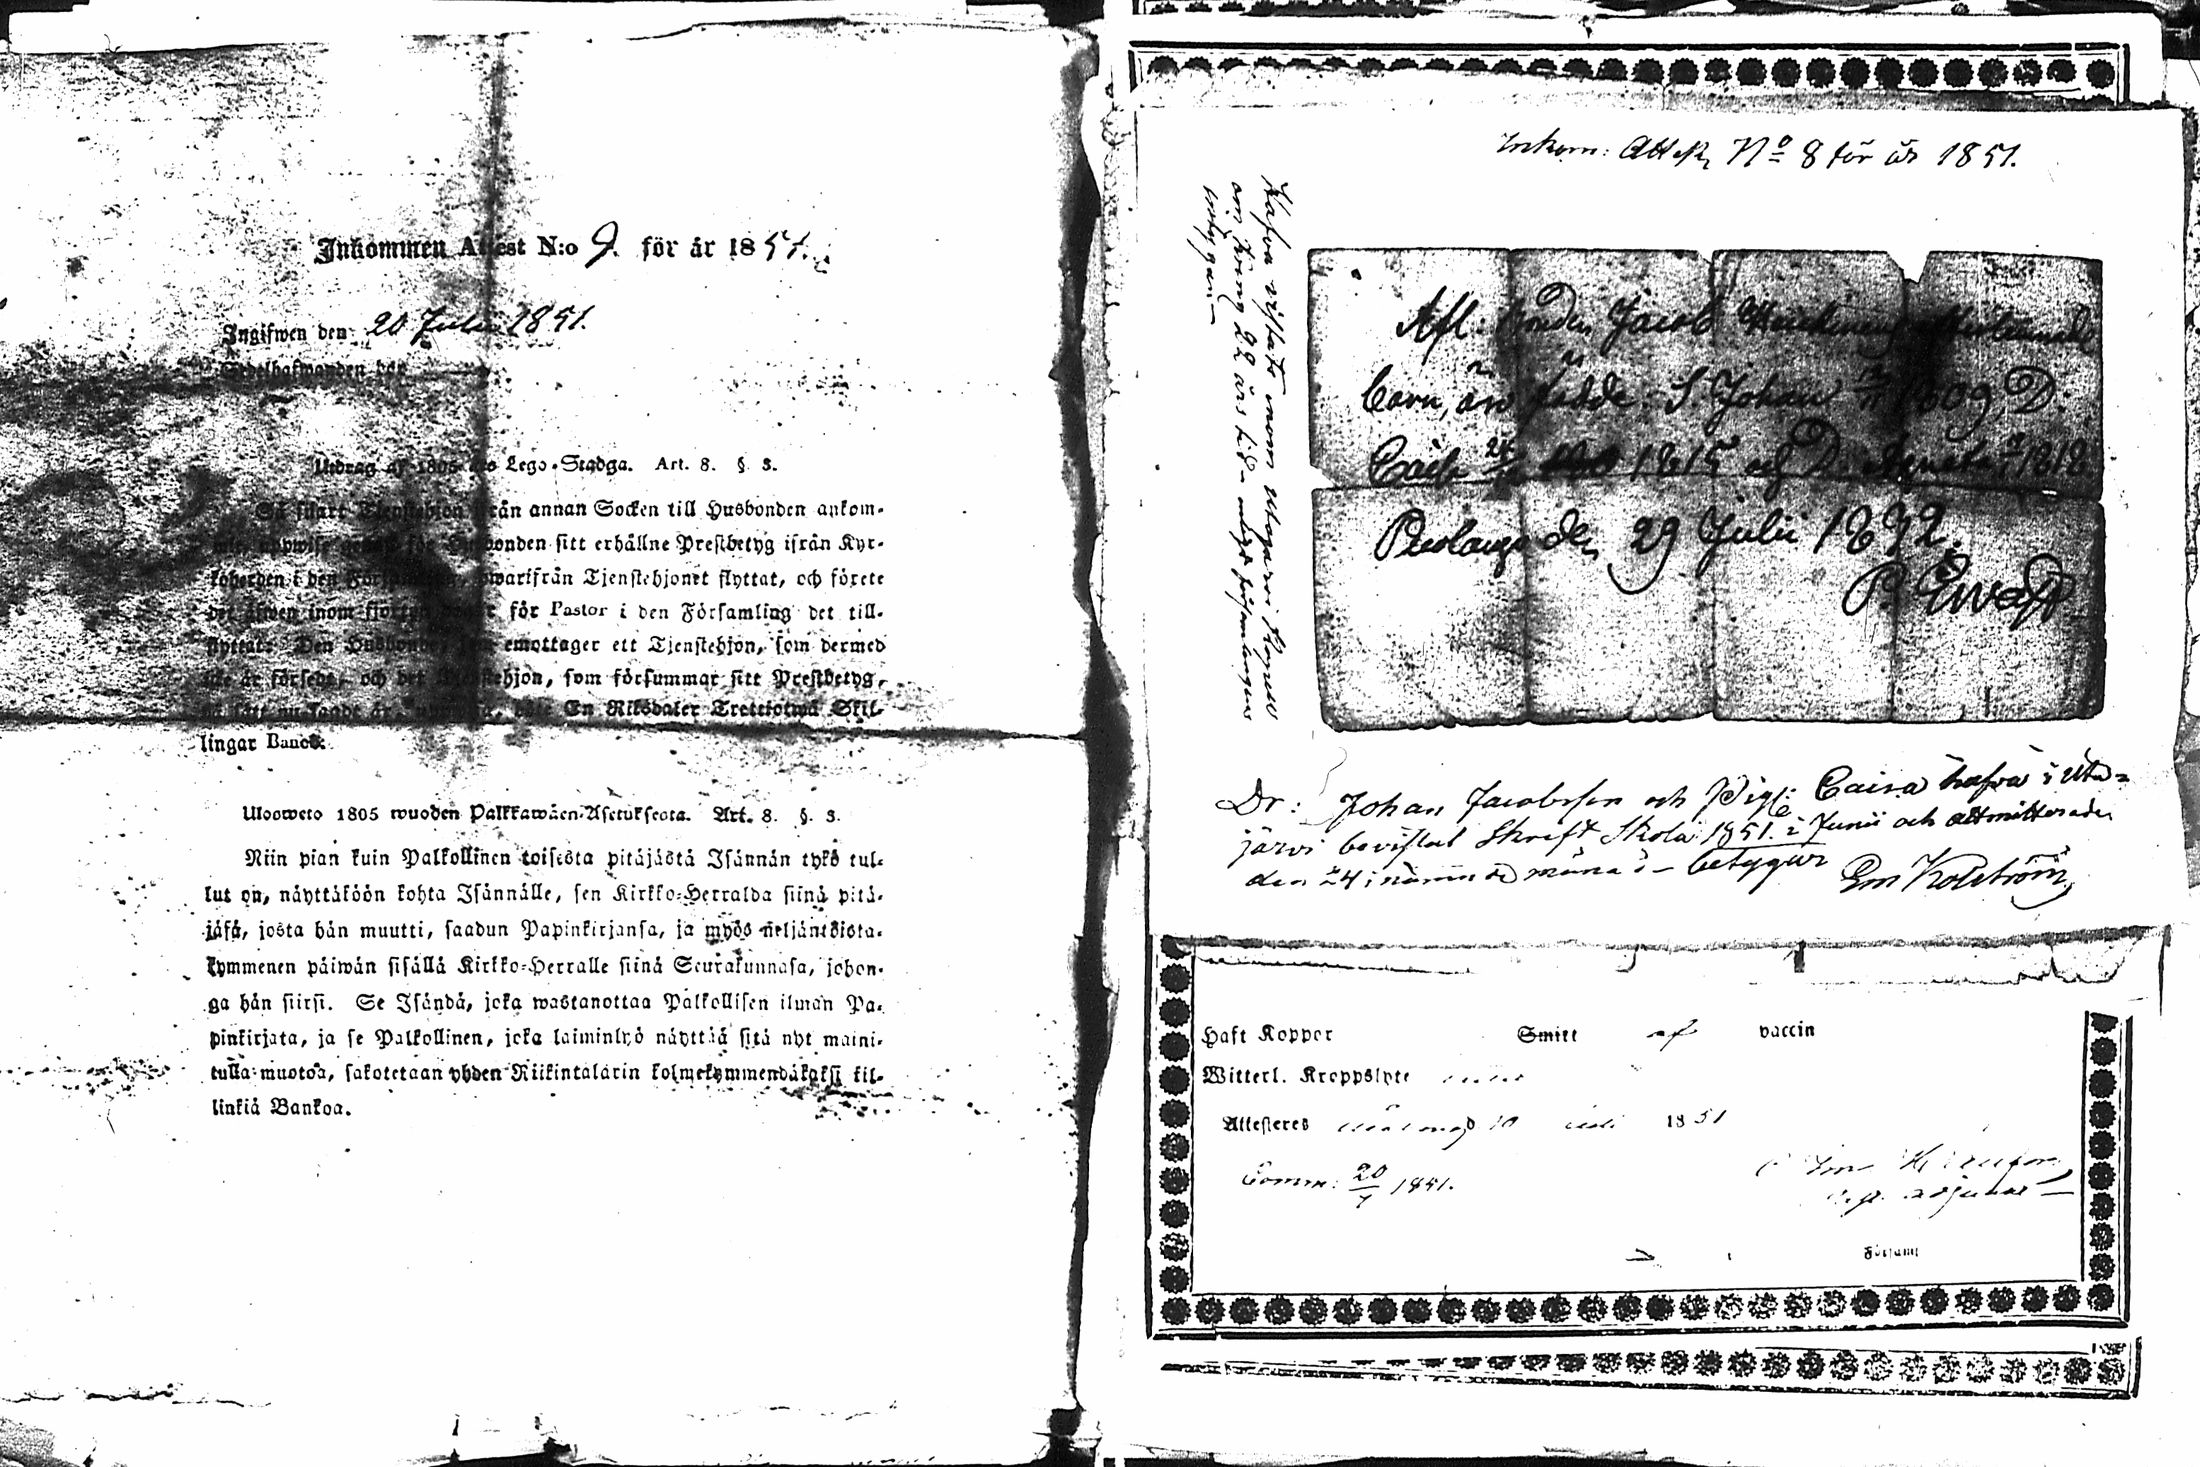 Inkommen Attest N:o 9. för år 1851.
Ingifwen den 20 Julii 1851.
Utdrag af 1805 års Lego-Stadga. Art. 8. §. 3.
Så snart Tjenstehjon ifrån annan Socken till Husbonden ankom-
mit, uppwise genast för Husbonden sitt erhållne Prestbetyg ifrån Kyr-
koherden i den Församling, hwarifrån Tjenstehjonet flyttat, och förete
det äfwen inom fjorton dagar för Pastor i den Församling det till-
flyttat. Den Husbonde, som emottager ett Tjenstehjon, som dermed
icke är försedt, och det Tjenstehjon, som försummar sitt Prestbetyg,
på sätt nu sagdt är, En Riksdaler Trettiotwå Skil-
lingar Banco.
Ulosweto 1805 wuoden Palkkawäen-Asetuksesta. Art. 8. §. 3.
Niin pian kuin Palkollinen toisesta pitäjästä Isännän tykö tul-
lut on, näyttäköön kohta Isännälle, sen Kirkko-Herralda siinä pitä-
jäsä, josta hän muutti, saadun Papinkirjansa, ja myös neljäntöista-
kymmenen päiwän sisällä Kirkko-Herralle siinä Seurakunnasa, johon-
ga hän siirsi. Se Isändä, joka wastanottaa Palkollisen ilman Pa-
pinkirjata, ja se Palkollinen, joka laiminlyö näyttää sitä nyt maini-
tulla muotoa, sakotetaan yhden Riikintalarin kolmekymmendäkaksi kil-
linkiä Bankoa.
Inkom: Attest N:o 8 för år 1851.
Hafva vistats inom Utajärvi Kapell
om kring 22 års tid
Afl. Bonden Jacob
barn, äro födde: S. Johan 1809, D.
Caisa 24 1815 och D. Agneta 1818
Puolango den 29 Julii 1832.
Dr: Johan Jacobsson och Pig: Caisa hafva i Uta-
järvi bevistat Skrift Skola 1851. i Junii och attmitterades
den 24 i nämnde månad betygar
Haft Koppor Smitt af vaccin
Witterl. Kroppslyte
Attesteres 10 Juli 1851
Comm: 20/7 1851.
adjunct
Församl